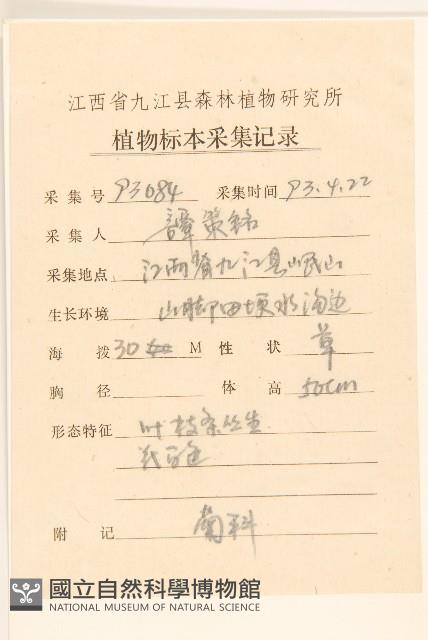 江西省九江县森林植物研究所
植物标本采集记录
采集号 93084 采集时间 93.4.22
采集人 譚策铭
采集地点 江西省九江县山
生长环境 山脚田埂水沟边
海拔 30 M 性状 草
胸径 体高 50cm
形态特征 叶枝条丛生
附记 菊科
國立自然科學博物館
NATIONAL MUSEUM OF NATURAL SCIENCE